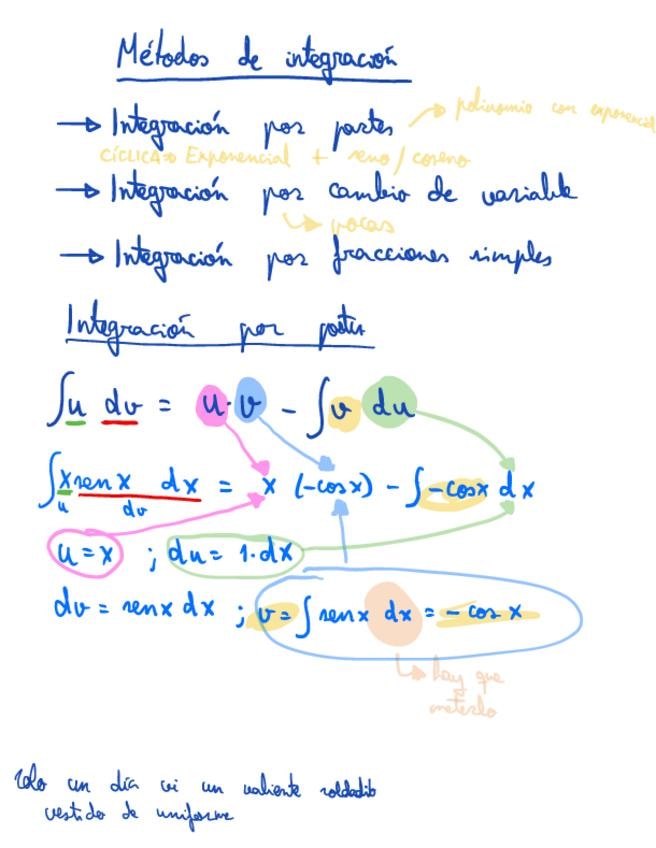 Métodos de integración
→ Integración por partes → polinomio con exponencial
CÍCLICA => Exponencial + seno / coseno
→ Integración por cambio de variable
↳ pocas
→ Integración por fracciones simples
Integración por partes
∫u dv = u·v - ∫v du
∫x senx dx = x (-cosx) - ∫-cosx dx
u dv
u = x ; du = 1·dx
dv = senx dx ; v = ∫senx dx = - cos x
↳ hay que
meterlo
Solo un día vi un valiente soldadito
vestido de uniforme